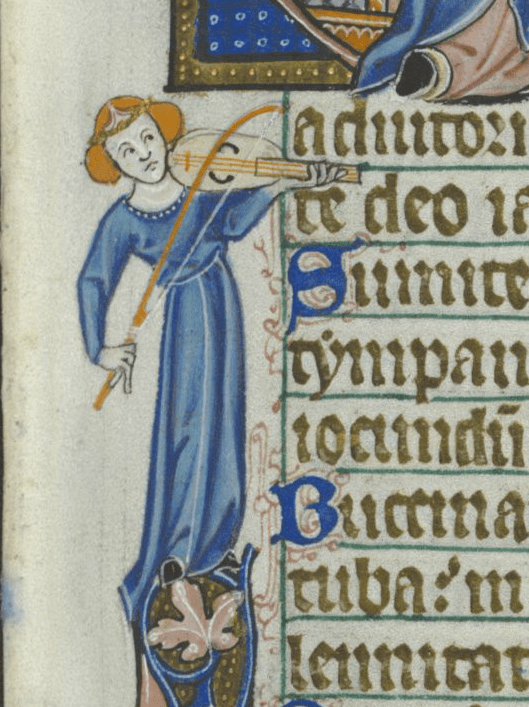 adiutori
te deo ia
Sumite
tympan
iocundū
Buccina
tuba: in
lennitat